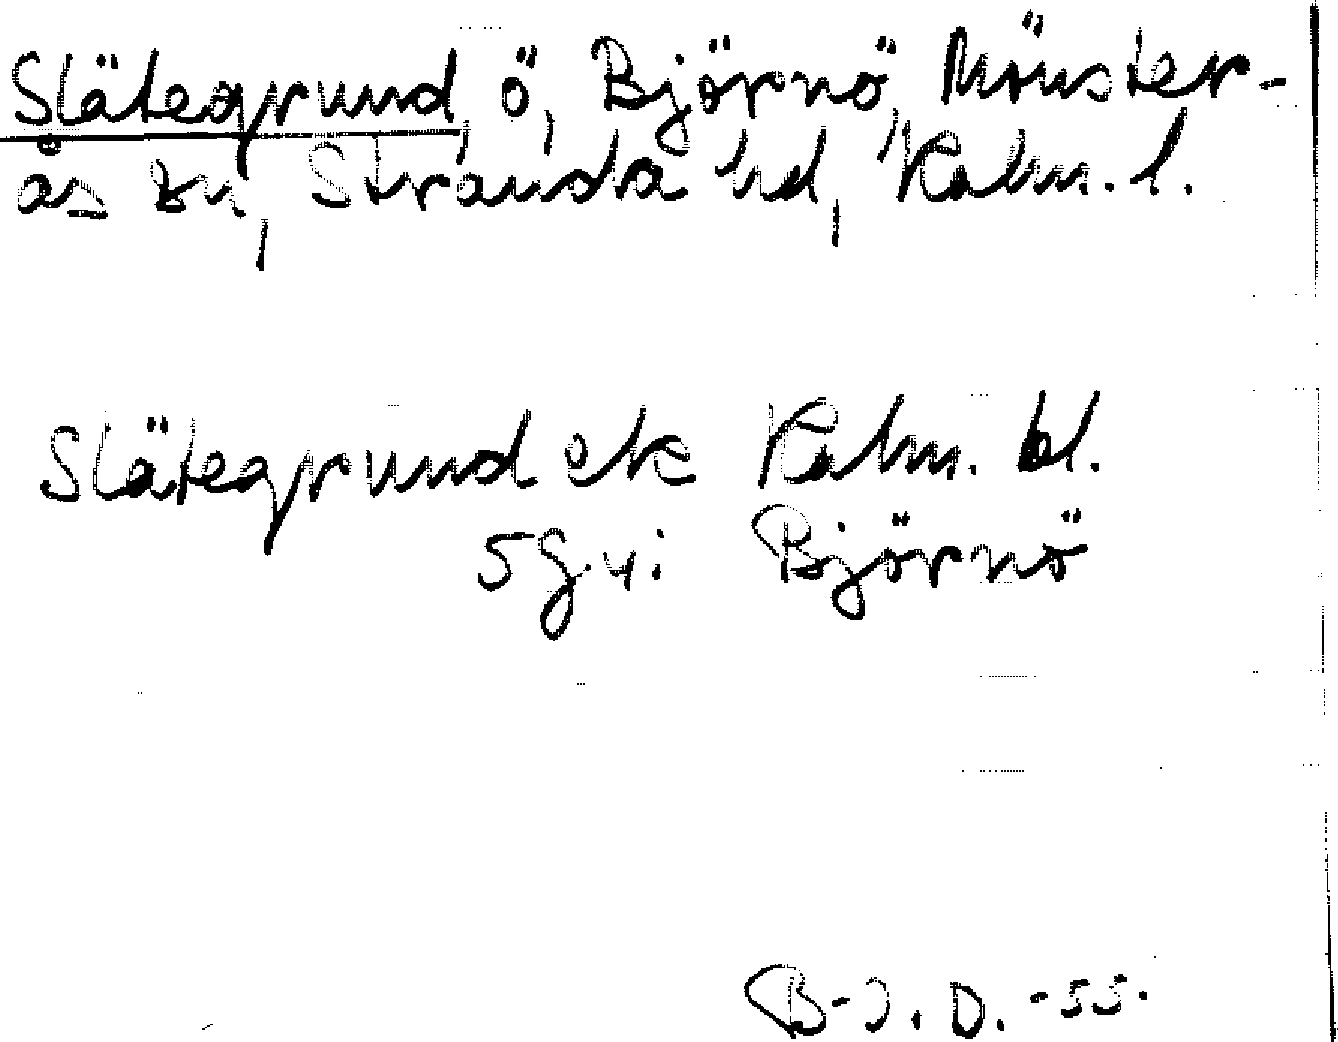 Slätegrund, ö, Björnö, Mönster-
ås sn, Stranda hd, Kalm. l.
Slätegrund ek Kalm. bl.
5 g. 4 i Björnö
B-J. D. -55.